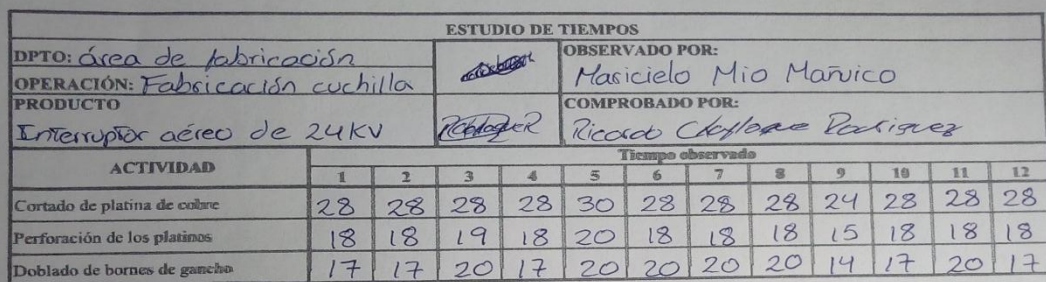 ESTUDIO DE TIEMPOS
DPTO: área de fabricación
OPERACIÓN: Fabricación cuchilla
OBSERVADO POR:
Maricielo Mio Mañuico
PRODUCTO
Interruptor aéreo de 24KV
COMPROBADO POR:
Ricardo
ACTIVIDAD Tiempo observado
1 2 3 4 5 6 7 8 9 10 11 12
Cortado de platina de cobre 28 28 28 28 30 28 28 28 24 28 28 28
Perforación de los platinos 18 18 19 18 20 18 18 18 15 18 18 18
Doblado de bornes de gancho 17 17 20 17 20 20 20 20 14 17 20 17